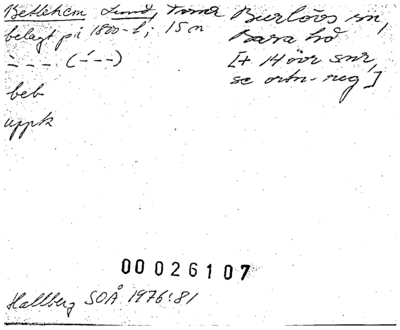 Betlehem Lund, Burlövs sn,
belagt på 1800-t; 15 n Bara hd
- - - (´- - -) [+ 14 övr snr,
se ortn-reg]
beb
uppk
00 026107
Hallberg SOÅ 1976:81